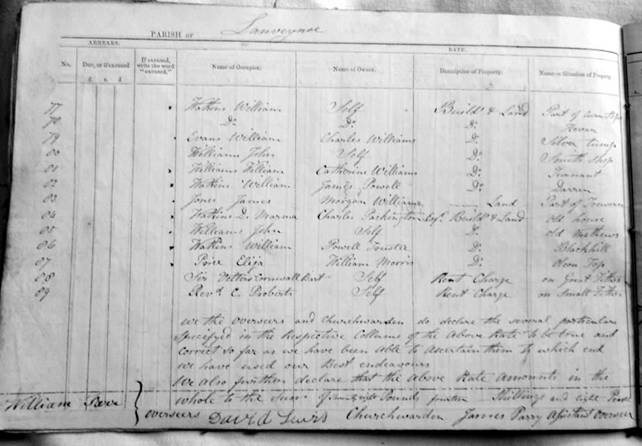 PARISH OF Lanveynoe
ARREARS. RATE.
No. Due, or if excused If excused, write the word "excused." Name of Occupier. Name of Owner. Description of Property. Name or Situation of Property
£. s. d.
77 Watkins William Self Build & Land Part of
78 Do Do Do
79 Evans William Charles Williams Do
80 Williams John Self Do
81 Williams William Catherine Williams Do
82 Watkins William James Powell Do Darren
83 Jones James Morgan Williams Land Part of
84 Watkins Charles Esq. Build & Land old house
85 Williams John Self Do old
86 Watkins William Powell Do Blackhill
87 Price Elija William Morris Do
88 Sir Cornwall Bart Self Rent Charge on Great Tithes
89 Revd. C. Probert Self Rent Charge on Small Tithes
we the overseers and churchwarden do declare the several particulars
specified in the Respective Collums of the above Rate to be true and
correct so far as we have been able to ascertain them to which end
we have used our Best endeavours
We also further declare that the above Rate amounts in the
whole to the Sum of Pounds, Shillings and eight Pence
William
overseers David Lewis Churchwarden James Parry Assistant Overseer